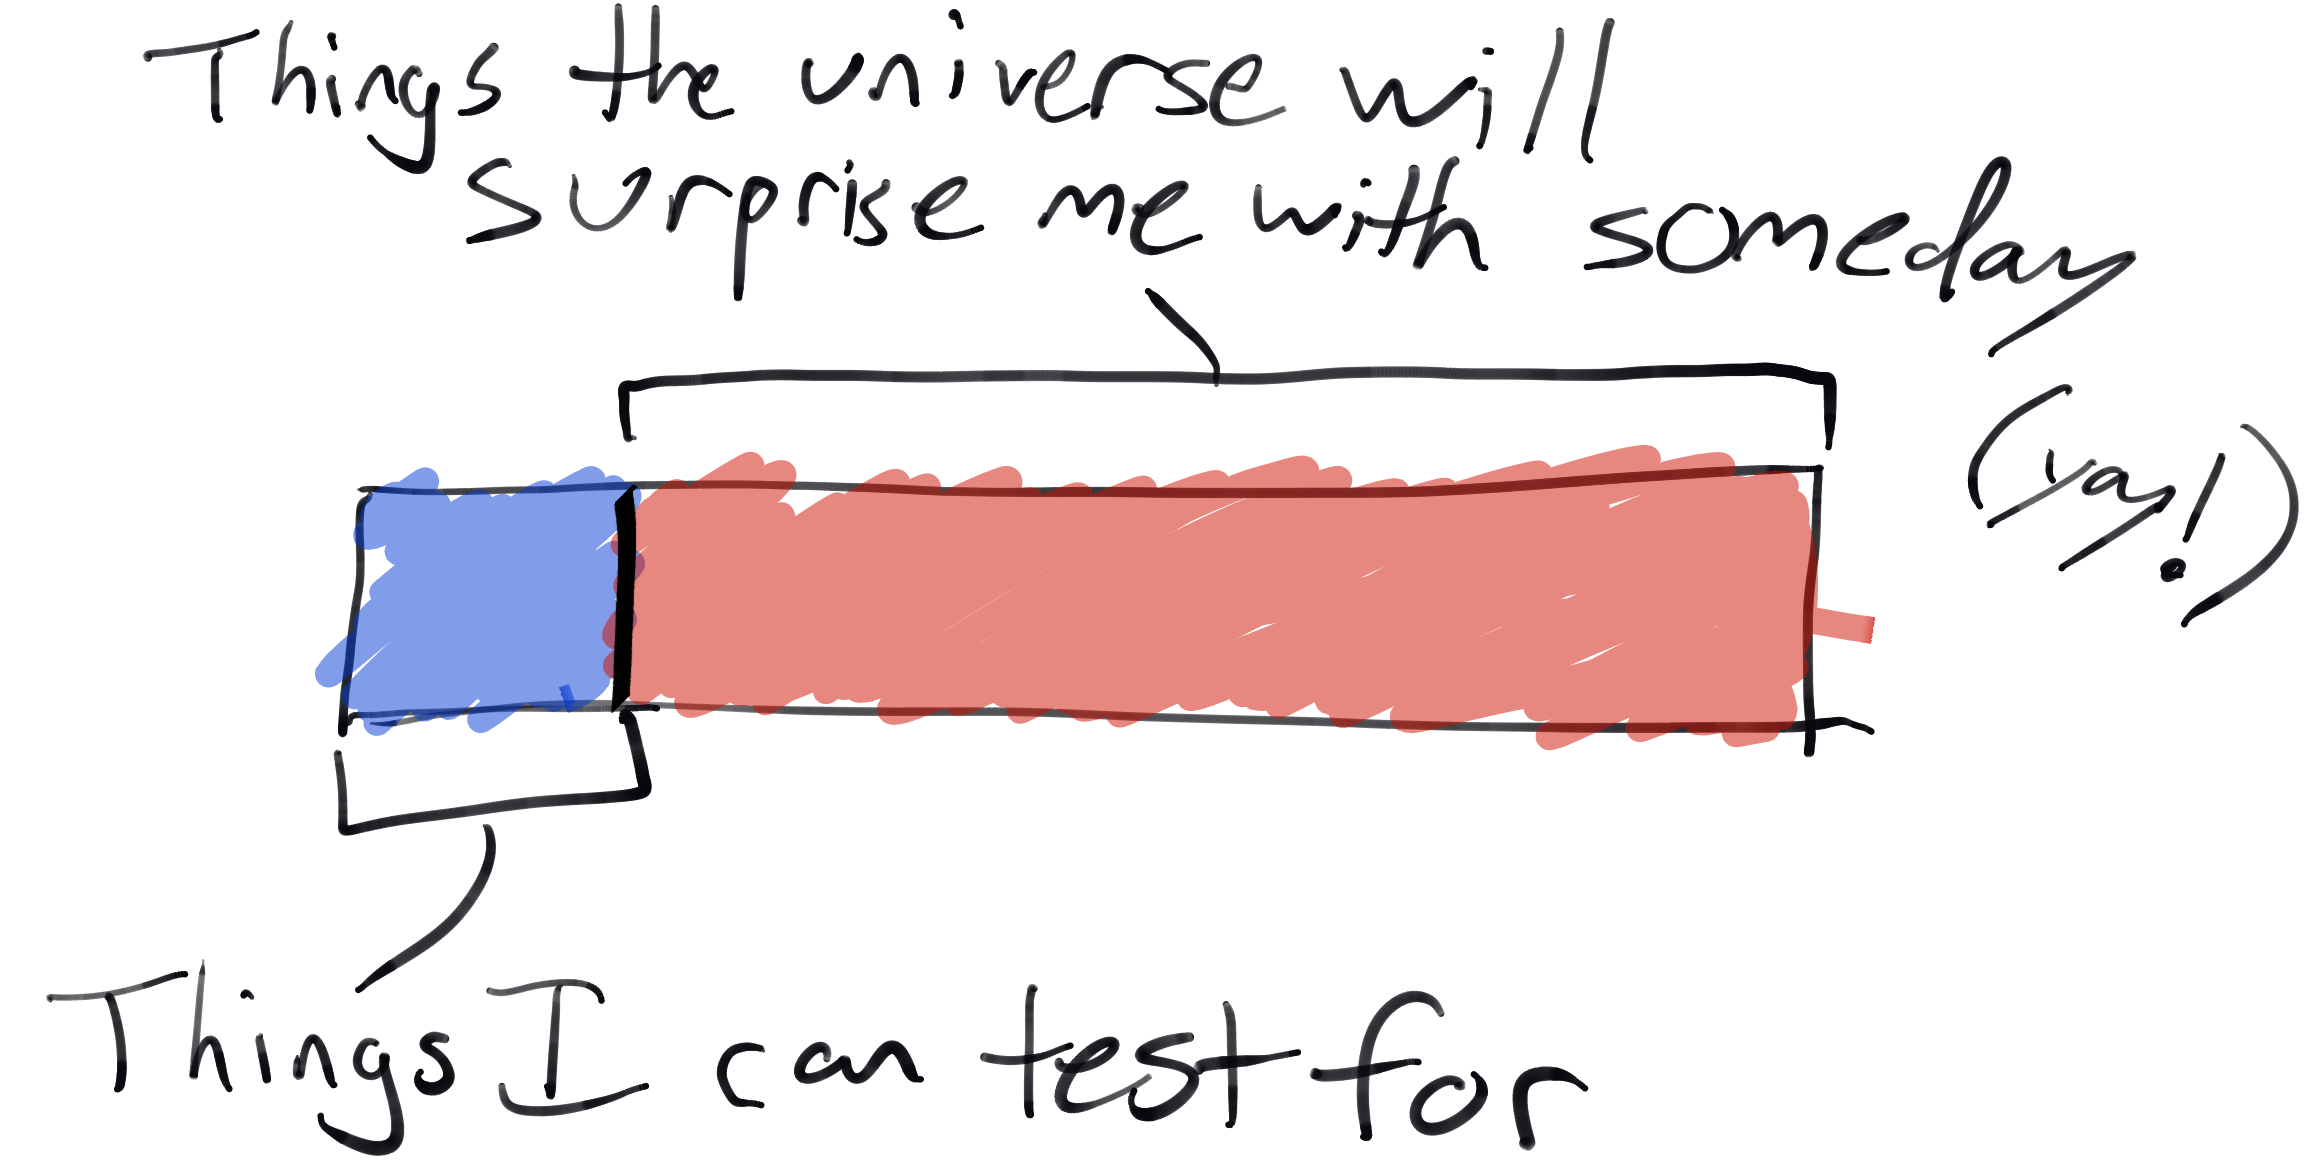 Things the universe will
surprise me with someday
(yay!)
Things I can test for